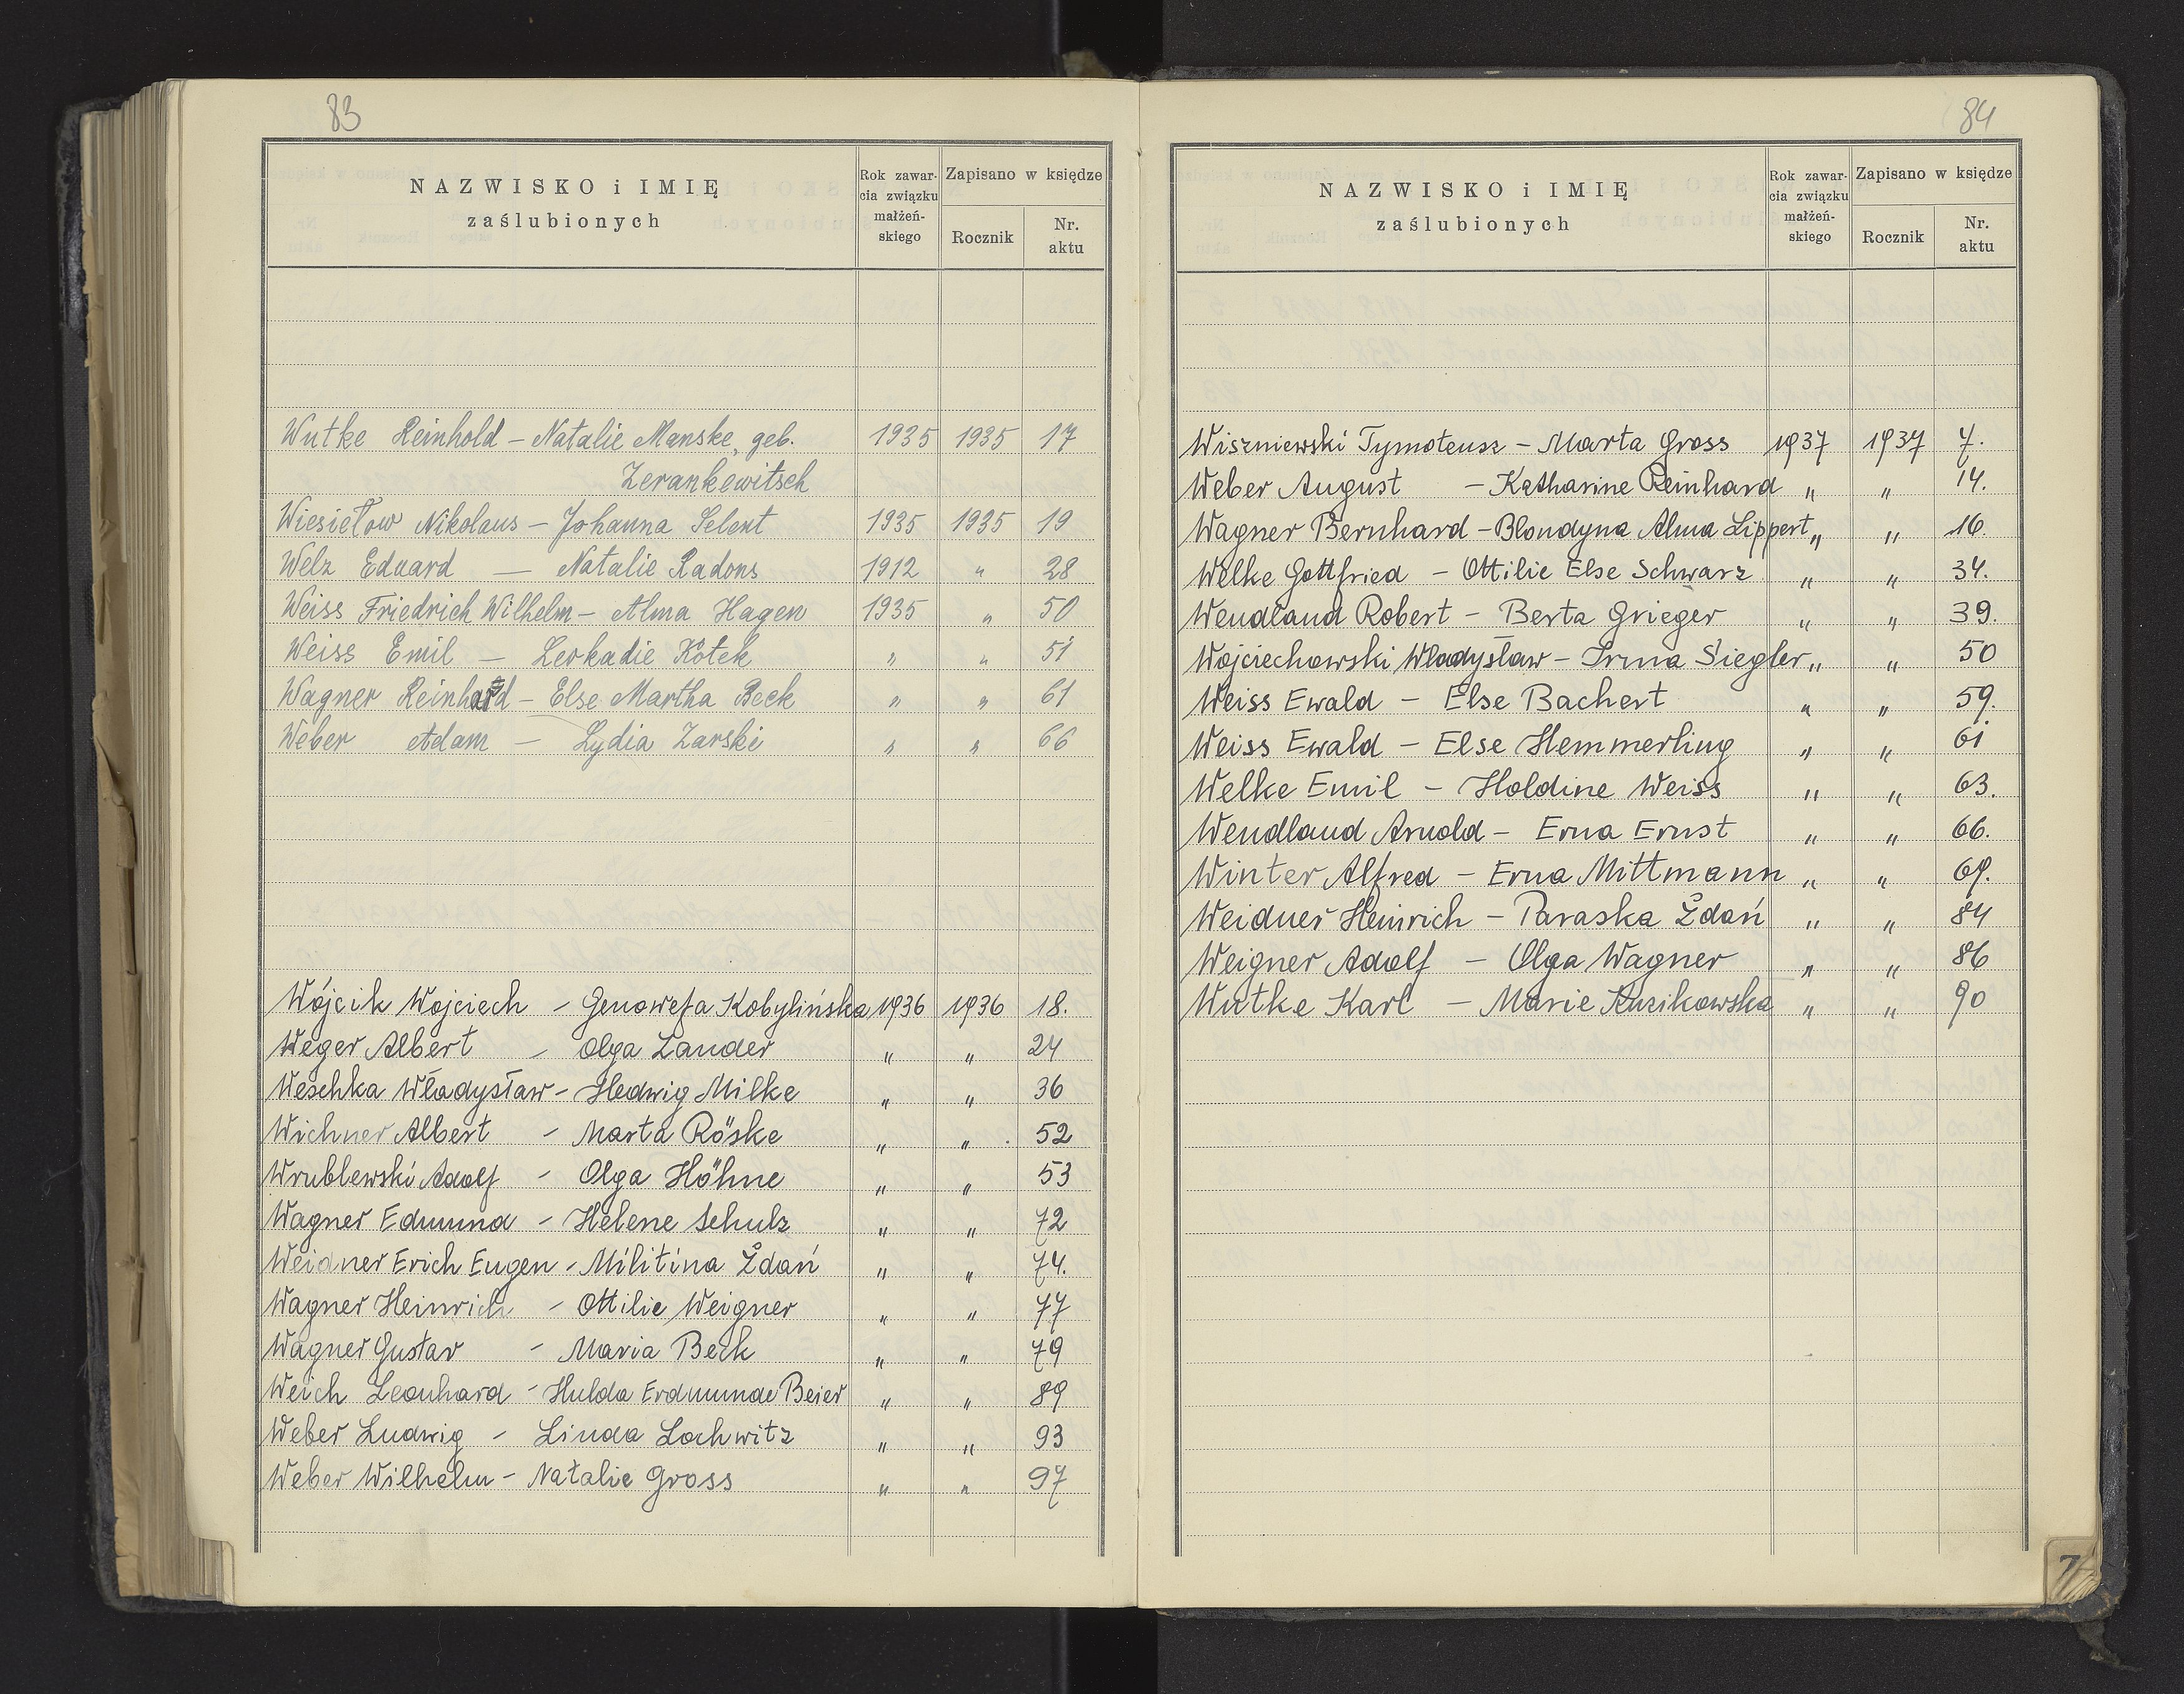 83
NAZWISKO i IMIĘ
zaślubionych
Rok zawar-
cia związku
małżeń-
skiego
Zapisano w księdze
Rocznik
Nr.
aktu
Wutke Reinhold – Natalie Manske, geb. 1935 1935 17
Zerankewitsch
Wiesiełow Nikolaus – Johanna Selent 1935 1935 19
Welz Eduard — Natalie Radons 1912 " 28
Weiss Friedrich Wilhelm – Alma Hagen 1935 " 50
Weiss Emil — Leokadie Kotek " " 51
Wagner Reinhard – Else Martha Beck " " 61
Weber Adam — Lydia Zarski " " 66
Wójcik Wojciech – Genowefa Kobylińska 1936 1936 18.
Weger Albert – Olga Zander " " 24
Weschka Władysław – Hedwig Milke " " 36
Wichner Albert – Marta Röske " " 52
Wrublewski Adolf – Olga Höhne " " 53
Wagner Edmund – Helene Schulz " " 72
Weidner Erich Eugen – Militina Żdań " " 74.
Wagner Heinrich – Ottilie Weigner " " 77
Wagner Gustav – Maria Beck " " 79
Weich Leonhard – Hulda Erdmunde Beier " " 89
Weber Ludwig – Linda Lochwitz " " 93
Weber Wilhelm – Natalie Gross " " 97
84
NAZWISKO i IMIĘ
zaślubionych
Rok zawar-
cia związku
małżeń-
skiego
Zapisano w księdze
Rocznik
Nr.
aktu
Wiszniewski Tymoteusz – Marta Gross 1937 1937 7.
Weber August – Katharine Reinhard " " 14.
Wagner Bernhard – Blondyna Alma Lippert " " 16.
Welke Gottfried – Ottilie Else Schwarz " " 34.
Wendland Robert – Berta Grieger " " 39.
Wojciechowski Władysław – Irma Siegler " " 50
Weiss Ewald – Else Bachert " " 59.
Weiss Ewald – Else Hemmerling " " 61
Welke Emil – Holdine Weiss " " 63.
Wendland Arnold – Erna Ernst " " 66.
Winter Alfred – Erna Mittmann " " 69.
Weidner Heinrich – Paraska Żdań " " 84
Weigner Adolf – Olga Wagner " " 86
Wutke Karl – Marie " " 90